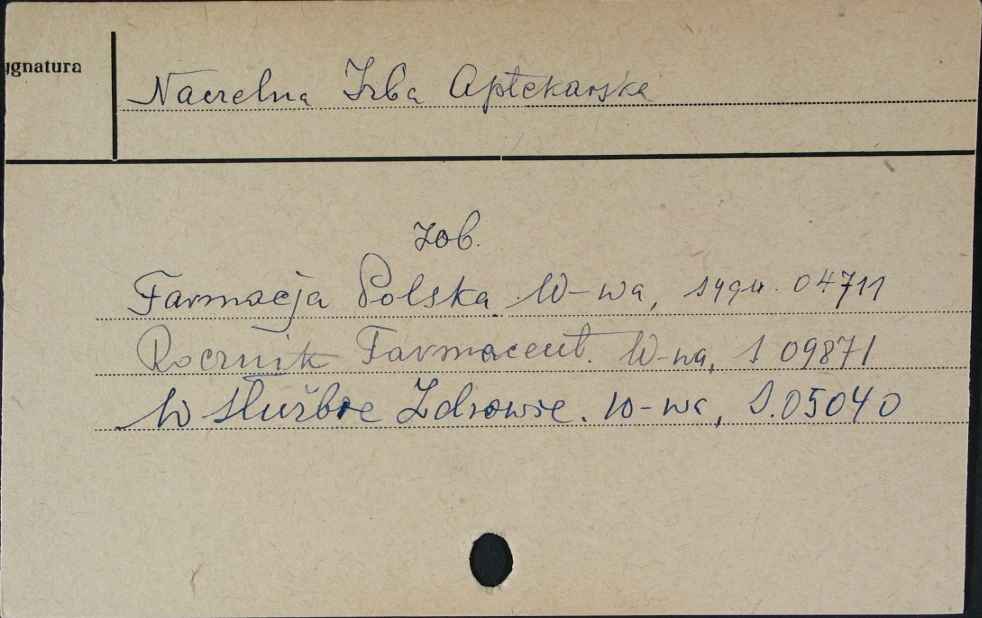 ygnatura
Naczelna Izba Aptekarska
zob.
Farmacja Polska W-wa, sygn. 04711
Rocznik Farmaceut. W-wa, S 09871
W służbie Zdrowie. W-wa, S.05040